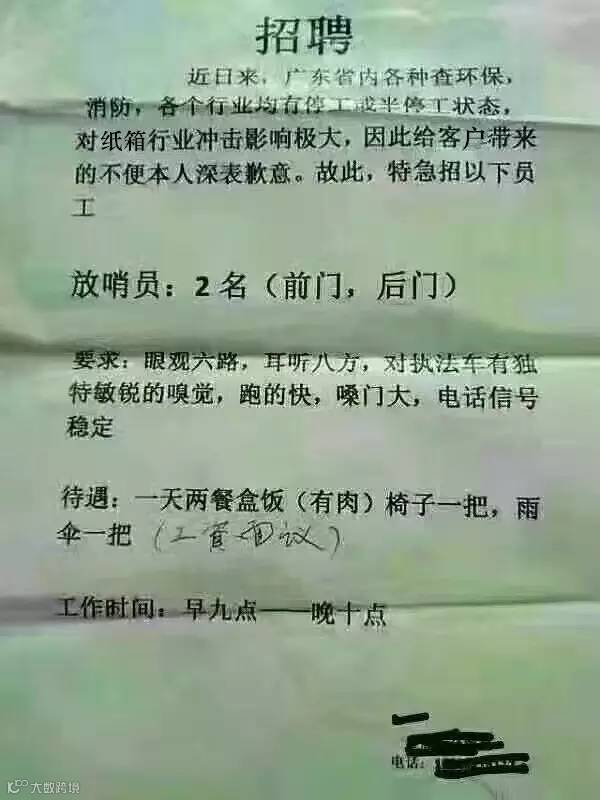 招聘
近日来，广东省内各种查环保，
消防，各个行业均有停工或半停工状态，
对纸箱行业冲击影响极大，因此给客户带来
的不便本人深表歉意。故此，特急招以下员
工
放哨员：2名（前门，后门）
要求：眼观六路，耳听八方，对执法车有独
特敏锐的嗅觉，跑的快，嗓门大，电话信号
稳定
待遇：一天两餐盒饭（有肉）椅子一把，雨
伞一把（工资面议）
工作时间：早九点——晚十点
电话：
大数跨境